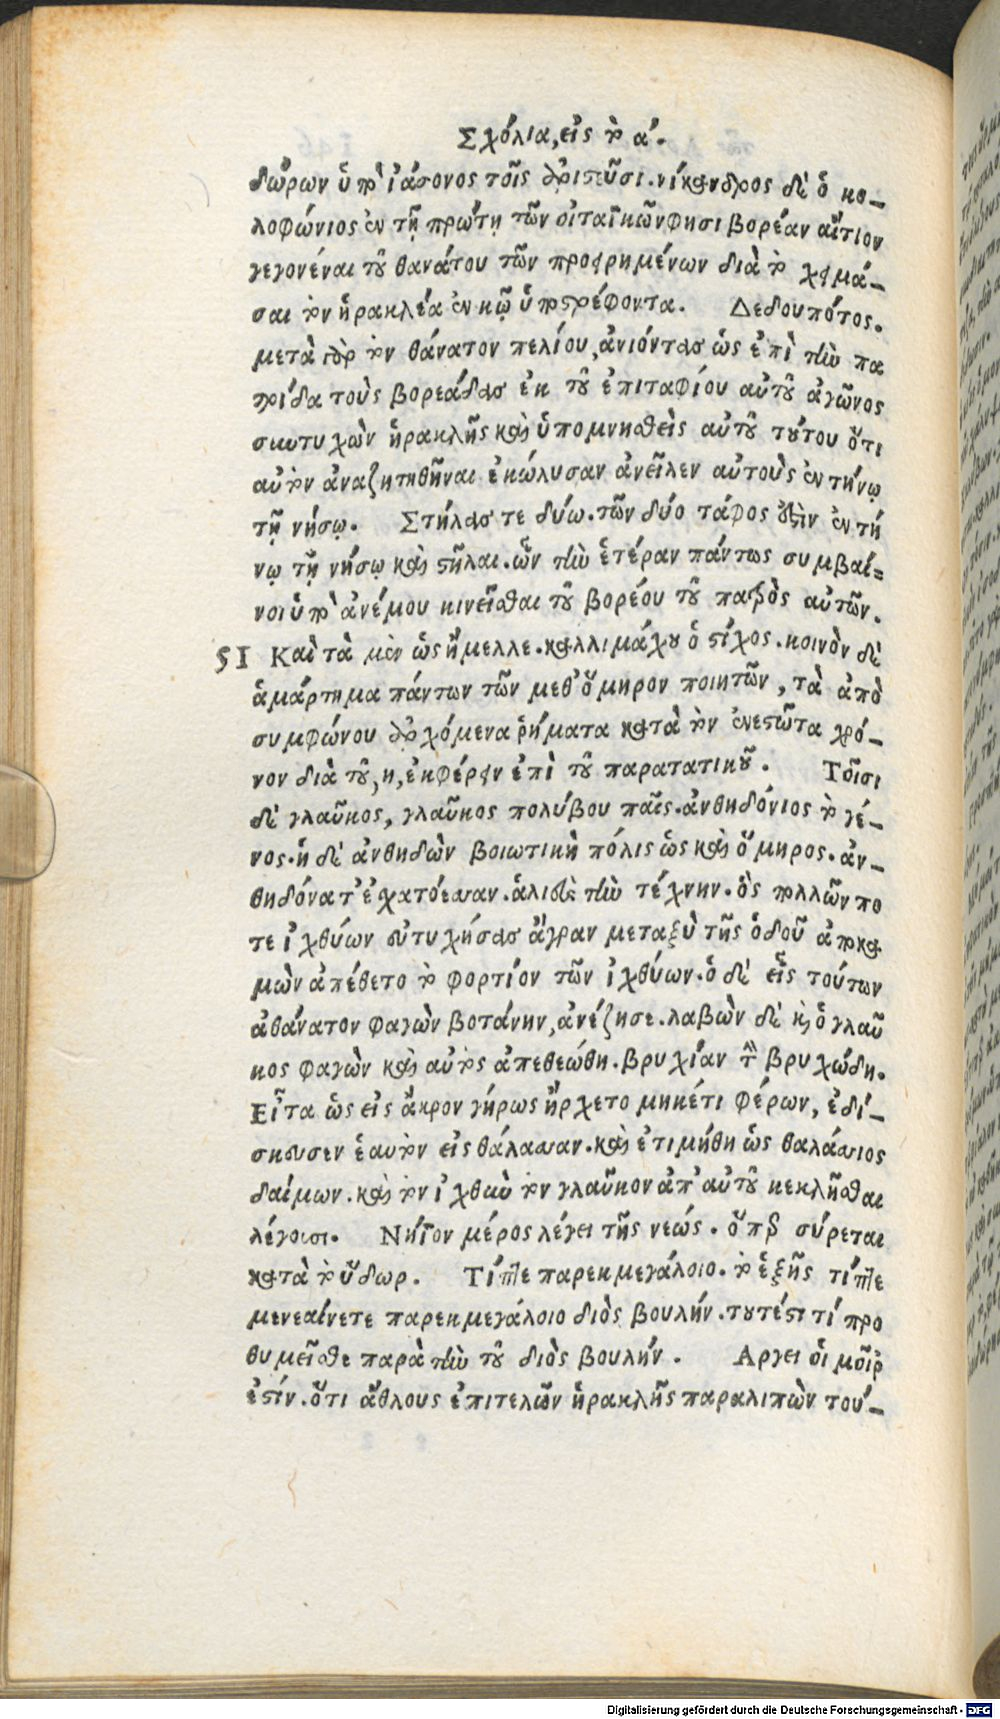 Σχόλια, εἰς τὸ α΄.
δώρων ὑπὸ ἰάσονος τοῖς ἀριστεῦσι. νίκανδρος δὲ ὁ κο-
λοφώνιος ἐν τῇ πρώτῃ τῶν οἰταϊκῶν φησι βορέαν αἴτιον
γεγονέναι τοῦ θανάτου τῶν προειρημένων διὰ τὸ χειμά-
σαι τὸν ἡρακλέα ἐν κῷ ὑποστρέφοντα. Δεδουπότος.
μετὰ γὰρ τὸν θάνατον πελίου, ἀνιόντας ὡς ἐπὶ τὴν πα
τρίδα τοὺς βορεάδας ἐκ τοῦ ἐπιταφίου αὐτοῦ ἀγῶνος
συντυχὼν ἡρακλῆς καὶ ὑπομνησθεὶς αὐτοῦ τούτου ὅτι
αὐτὸν ἀναζητηθῆναι ἐκώλυσαν ἀνεῖλεν αὐτοὺς ἐν τήνῳ
τῇ νήσῳ. Στήλας τε δύω. τῶν δύο τάφος οὐσὶν ἐν τή
νῳ τῇ νήσῳ καὶ στῆλαι. ὧν τὴν ἑτέραν πάντως συμβαί=
νοι ὑπὸ ἀνέμου κινεῖσθαι τοῦ βορέου τοῦ πατρὸς αὐτῶν.
51 Καὶ τὰ μὲν ὡς ἤμελλε. καλλιμάχου ὁ στίχος. κοινὸν δὲ
ἁμάρτημα πάντων τῶν μεθ' ὅμηρον ποιητῶν, τὰ ἀπὸ
συμφώνου ἀρχόμενα ῥήματα κατὰ τὸν ἐνεστῶτα χρό-
νον διὰ τοῦ, η, ἐκφέρειν ἐπὶ τοῦ παρατατικοῦ. Τοῖσι
δὲ γλαῦκος, γλαῦκος πολύβου παῖς. ἀνθηδόνιος τὸ γέ-
νος. ἡ δὲ ἀνθηδὼν βοιωτικὴ πόλις ὡς καὶ ὅμηρος. ἀν-
θηδόνα τ' ἐχατόεσσαν. ἁλιεὺς τὴν τέχνην. ὃς πολλῶν πο
τε ἰχθύων εὐτυχήσας ἄγραν μεταξὺ τῆς ὁδοῦ ἀποκα
μὼν ἀπέθετο τὸ φορτίον τῶν ἰχθύων. ὁ δὲ εἷς τούτων
ἀθάνατον φαγὼν βοτάνην, ἀνέζησε. λαβὼν δὲ καὶ ὁ γλαῦ
κος φαγὼν καὶ αὐτὸς ἀπεθεώθη. βρυχίαν τὴν βρυχώδη.
Εἶτα ὡς εἰς ἄκρον γήρως ἤρχετο μηκέτι φέρων, ἐδί-
σκευσεν ἑαυτὸν εἰς θάλασσαν. καὶ ἐτιμήθη ὡς θαλάσσιος
δαίμων. καὶ τὸν ἰχθὺν τὸν γλαῦκον ἀπ' αὐτοῦ κεκλῆσθαι
λέγουσι. Νήϊον μέρος λέγει τῆς νεώς. ὅπερ σύρεται
κατὰ τὸ ὕδωρ. Τίπτε παρεκ μεγάλοιο. τὸ ἑξῆς τίπτε
μενεαίνετε παρεκ μεγάλοιο διὸς βουλήν. τουτέστι τί προ
θυμεῖσθε παρὰ τὴν τοῦ διὸς βουλήν. Αργει οἱ μοῖρ
ἐστίν. ὅτι ἄθλους ἐπιτελῶν ἡρακλῆς παραλιπὼν τού-
Digitalisierung gefördert durch die Deutsche Forschungsgemeinschaft - DFG